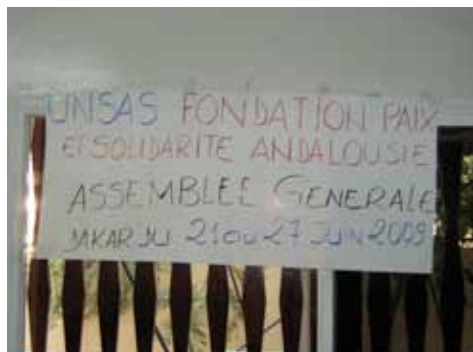 UNSAS FONDATION PAIX
ET SOLIDARITE ANDALOUSIE
ASSEMBLEE GENERALE
DAKAR DU 21 au 27 JUIN 2009